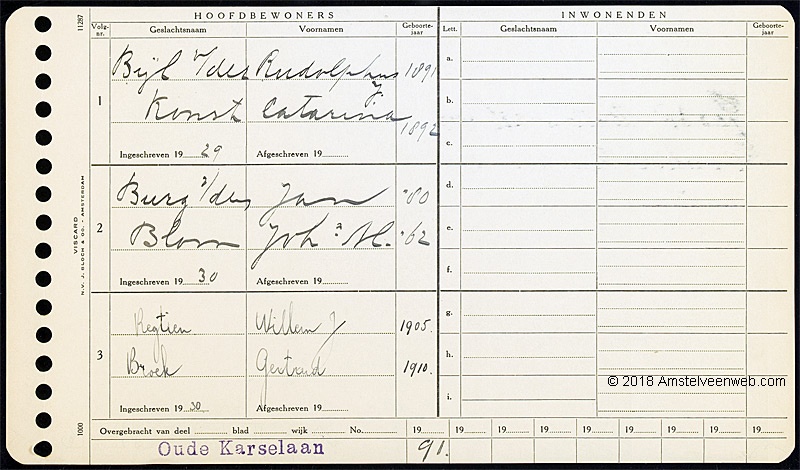 HOOFDBEWONERS INWONENDEN
11287
Volg-nr. Geslachtsnaam Voornamen Geboorte-jaar Lett. Geslachtsnaam Voornamen Geboorte-jaar
Bijl v/der Rudolphus J 1891 a.
1 Konst Catarina 1892 b.
c.
Ingeschreven 19 29 Afgeschreven 19
Burg v/der Jan '80 d.
2 Blom Joha M. '62 e.
f.
Ingeschreven 19 30 Afgeschreven 19
Regtien Willem J 1905. g.
3 Broek Gertrud 1910. h.
i.
Ingeschreven 19 30 Afgeschreven 19
VISCARD
N.V. J. BLOCH & CO. - AMSTERDAM
1000
© 2018 Amstelveenweb.com
Overgebracht van deel blad wijk No. 19 19 19 19 19 19 19 19 19 19
Oude Karselaan 91.